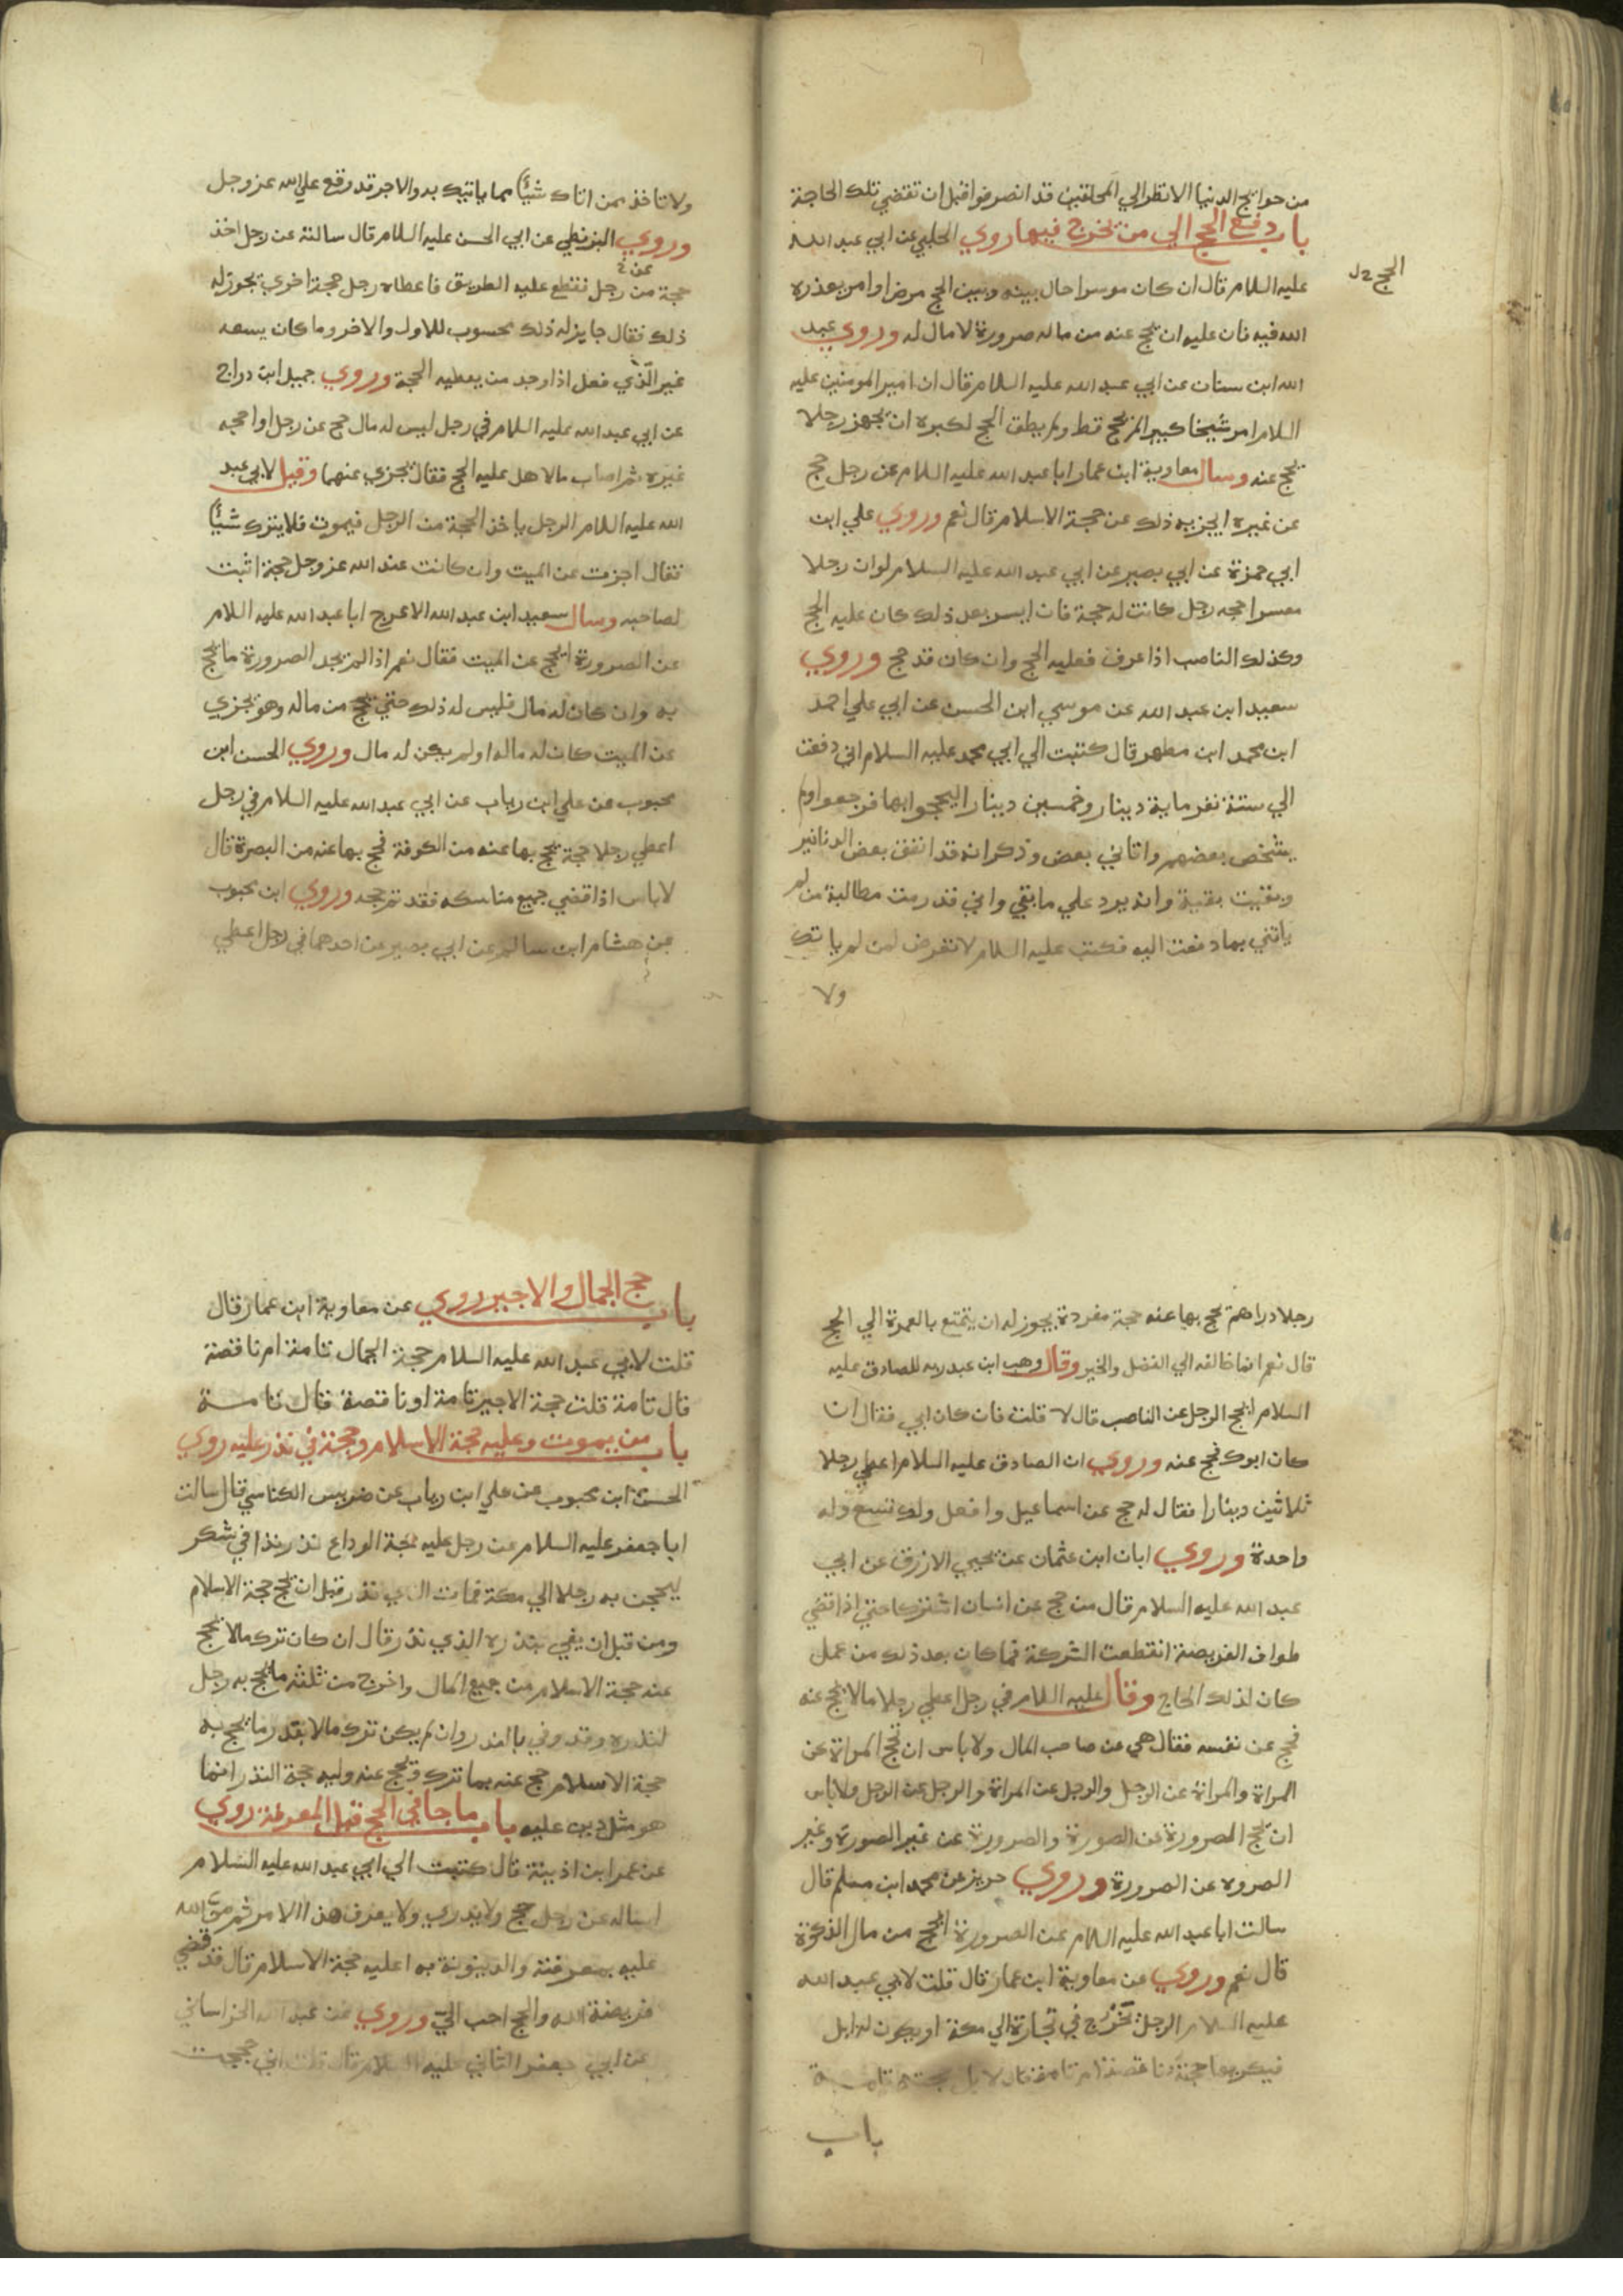 من حوايج الدنيا الا نظر الي المحلقين قد انصرفوا قبل ان تقضي تلك الحاجة
باب دفع الحج الي من يخرج فيها روي الحلبي عن ابي عبد الله
الحج
عليه السلام قال ان كان موسرا حال بينه وبين الحج مرض او امر يعذره
الله فيه فان عليه ان يحج عنه من ماله صرورة لا مال له وروي عبد
الله ابن سنان عن ابي عبد الله عليه السلام قال ان امير المومنين عليه
السلام امر شيخا كبيرا لم يحج قط ولم يطق الحج لكبره ان يجهز رجلا
يحج عنه وسال معاوية ابن عمار ابا عبد الله عليه السلام عن رجل حج
عن غيره ايجزيه ذلك عن حجة الاسلام قال نعم وروي علي ابن
ابي حمزة عن ابي بصير عن ابي عبد الله عليه السلام لو ان رجلا
معسرا احجه رجل كانت له حجة فان ايسر بعد ذلك كان عليه الحج
وكذلك الناصب اذا عرف فعليه الحج وان كان قد حج وروي
سعيد ابن عبد الله عن موسي ابن الحسن عن ابي علي احمد
ابن محمد ابن مطهر قال كتبت الي ابي محمد عليه السلام اني دفعت
الي ستة نفر ماية دينار وخمسين دينارا ليحجوا بها فرجعوا ولم
يشخص بعضهم واتاني بعض وذكر انه قد انفق بعض الدنانير
وبقيت بقية وانه يرد علي ما بقي واني قد رمت مطالبة من لم
ياتني بما دفعت اليه فكتب عليه السلام لا تعرض لمن لم ياتك
ولا
ولا تاخذ ممن اتاك شيئا مما ياتيك به والاجر قد وقع علي الله عز وجل
وروي البزنطي عن ابي الحسن عليه السلام قال سالته عن رجل اخذ
حجة من رجل فقطع عليه الطريق فاعطاه رجل حجة اخري يجوز له
ذلك فقال جايز له ذلك محسوب للاول والاخر وما كان يسعه
غير الذي فعل اذا وجد من يعطيه الحجة وروي جميل ابن دراج
عن ابي عبد الله عليه السلام في رجل ليس له مال حج عن رجل او احجه
غيره ثم اصاب مالا هل عليه الحج فقال يجزي عنهما وقيل لابي عبد
الله عليه السلام الرجل ياخذ الحجة من الرجل فيموت فلا يترك شيئا
فقال اجزت عن الميت وان كانت عند الله عز وجل حجة اثبت
لصاحبه وسال سعيد ابن عبد الله الاعرج ابا عبد الله عليه السلام
عن الصرورة ايحج عن الميت فقال نعم اذا لم يجد الصرورة ما يحج
به وان كان له مال فليس له ذلك حتي يحج من ماله وهو يجزي
عن الميت كان له مال او لم يكن له مال وروي الحسن ابن
محبوب عن علي ابن رياب عن ابي عبد الله عليه السلام في رجل
اعطي رجلا حجة يحج بها عنه من الكوفة فحج بها عنه من البصرة قال
لا باس اذا قضي جميع مناسكه فقد تم حجه وروي ابن محبوب
عن هشام ابن سالم عن ابي بصير عن احدهما في رجل اعطي
رجلا دراهم يحج بها عنه حجة مفردة يجوز له ان يتمتع بالعمرة الي الحج
قال نعم انما خالفه الي الفضل والخير وقال وهب ابن عبد ربه للصادق عليه
السلام ايحج الرجل عن الناصب قال لا قلت فان كان ابي فقال ان
كان ابوك فحج عنه وروي ان الصادق عليه السلام اعطي رجلا
ثلاثين دينارا فقال له حج عن اسماعيل وافعل ولك تسع وله
واحدة وروي ابان ابن عثمان عن يحيي الازرق عن ابي
عبد الله عليه السلام قال من حج عن انسان اشتركا حتي اذا قضي
طواف الفريضة انقطعت الشركة فما كان بعد ذلك من عمل
كان لذلك الحاج وقال عليه السلام في رجل اعطي رجلا مالا يحج عنه
فحج عن نفسه فقال هي عن صاحب المال ولا باس ان تحج المراة عن
المراة والمراة عن الرجل والرجل عن المراة والرجل عن الرجل ولا باس
ان يحج الصرورة عن الصورة والصرورة عن غير الصورة وغير
الصروه عن الصرورة وروي حريز عن محمد ابن مسلم قال
سالت ابا عبد الله عليه السلام عن الصرورة ايحج من مال الذكوة
قال نعم وروي عن معاوية ابن عمار قال قلت لابي عبد الله
عليه السلام الرجل يخرج في تجارة الي مكة او يكون له ابل
فيكريها حجته ناقصة ام تامة قال لا بل حجته تامة
باب
باب حج الجمال والاجير روي عن معاوية ابن عمار قال
قلت لابي عبد الله عليه السلام حجة الجمال تامة ام ناقصة
قال تامة قلت حجة الاجير تامة او ناقصة قال تامة
باب من يموت وعليه حجة الاسلام وحجة في نذر عليه روي
الحسن ابن محبوب عن علي ابن رياب عن ضريس الكناسي قال سالت
ابا جعفر عليه السلام عن رجل عليه حجة الوداع نذر نذرا في شكر
ليحجن به رجلا الي مكة فمات الذي نذر قبل ان يحج حجة الاسلام
ومن قبل ان يفي بنذره الذي نذر قال ان كان ترك مالا يحج
عنه حجة الاسلام من جميع المال واخرج من ثلثه ما يحج به رجل
لنذره وقد وفي بالنذر وان لم يكن ترك مالا بقدر ما يحج به
حجة الاسلام حج عنه بما ترك ويحج عنه وليه حجة النذر انما
هو مثل دين عليه باب ما جا في الحج قبل المعرفة روي
عن عمر ابن اذينة قال كتبت الي ابي عبد الله عليه السلام
اساله عن رجل حج ولا يدري ولا يعرف هذا الامر ثم من الله
عليه بمعرفته والدينونة به اعليه حجة الاسلام قال قد قضي
فريضة الله والحج احب الي وروي عن عبد الله الخراساني
عن ابي جعفر الثاني عليه السلام قال قلت اني حججت